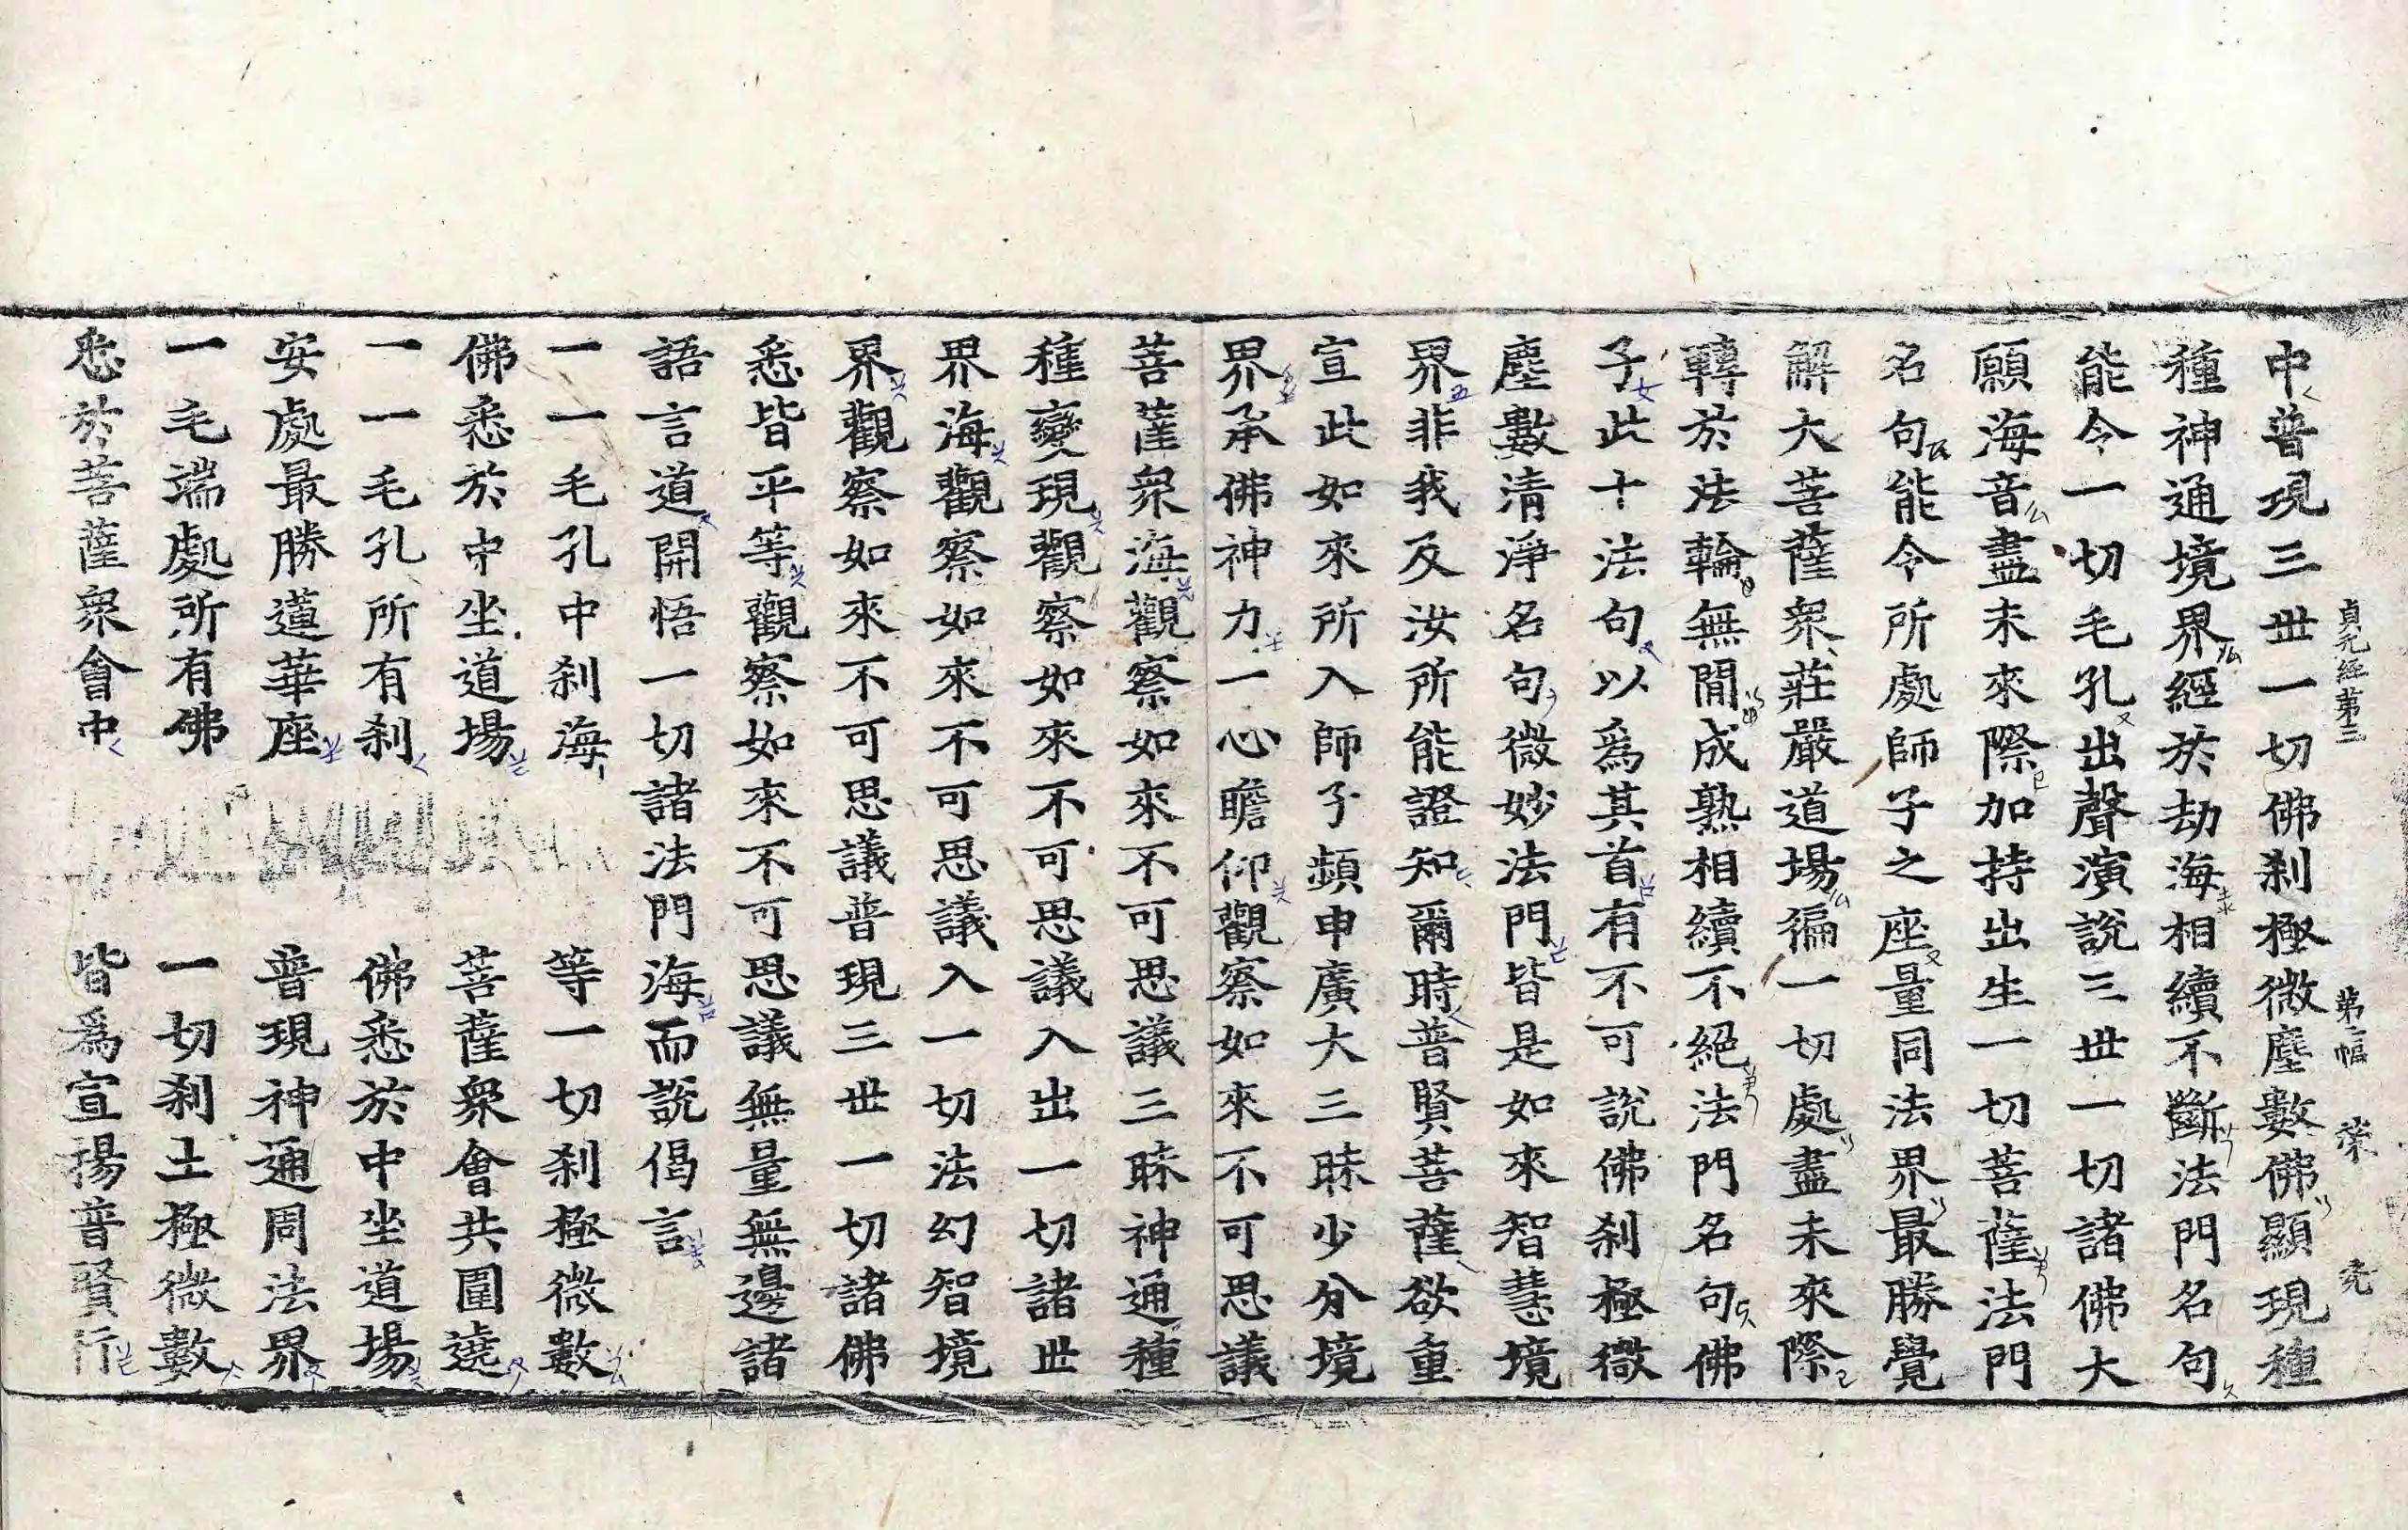 貞元經第三　第二幅　榮　堯
中普現三世一切佛刹極微塵數佛顯現種
種神通境界經於劫海相續不斷法門名句
能令一切毛孔出聲演說三世一切諸佛大
願海音盡未來際加持出生一切菩薩法門
名句能令所處師子之座量同法界最勝覺
解大菩薩衆莊嚴道場徧一切處盡未來際
轉於法輪無閒成熟相續不絕法門名句佛
子此十法句以爲其首有不可說佛刹極微
塵數清淨名句微妙法門皆是如來智慧境
界非我及汝所能證知爾時普賢菩薩欲重
宣此如來所入師子頻申廣大三昧少分境
界承佛神力一心瞻仰觀察如來不可思議
菩薩衆海觀察如來不可思議三昧神通種
種變現觀察如來不可思議入出一切諸世
界海觀察如來不可思議入一切法幻智境
界觀察如來不可思議普現三世一切諸佛
悉皆平等觀察如來不可思議無量無邊諸
語言道開悟一切諸法門海而說偈言
一一毛孔中刹海　等一切刹極微數
佛悉於中坐道場　菩薩衆會共圍遶
一一毛孔所有刹　佛悉於中坐道場
安處最勝道華座　普現神通周法界
一毛端處所有佛　一切刹土極微數
悉於菩薩衆會中　皆爲宣揚普賢行